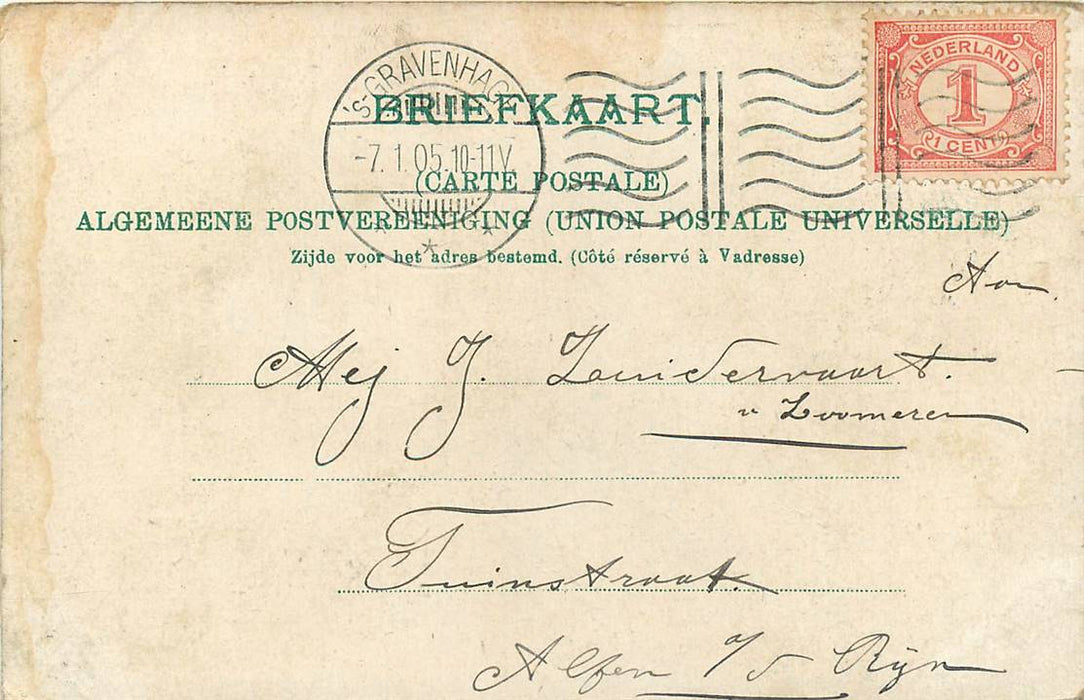 's-GRAVENHAGE
-7.1.05.10-11V
NEDERLAND
1
1 CENT
BRIEFKAART.
(CARTE POSTALE)
ALGEMEENE POSTVEREENIGING (UNION POSTALE UNIVERSELLE)
Zijde voor het adres bestemd. (Côté réservé à Vadresse)
Aan
Mej J. Zuidervaart.
v Zoomeren
Tuinstraat
Alfen a/d Rijn